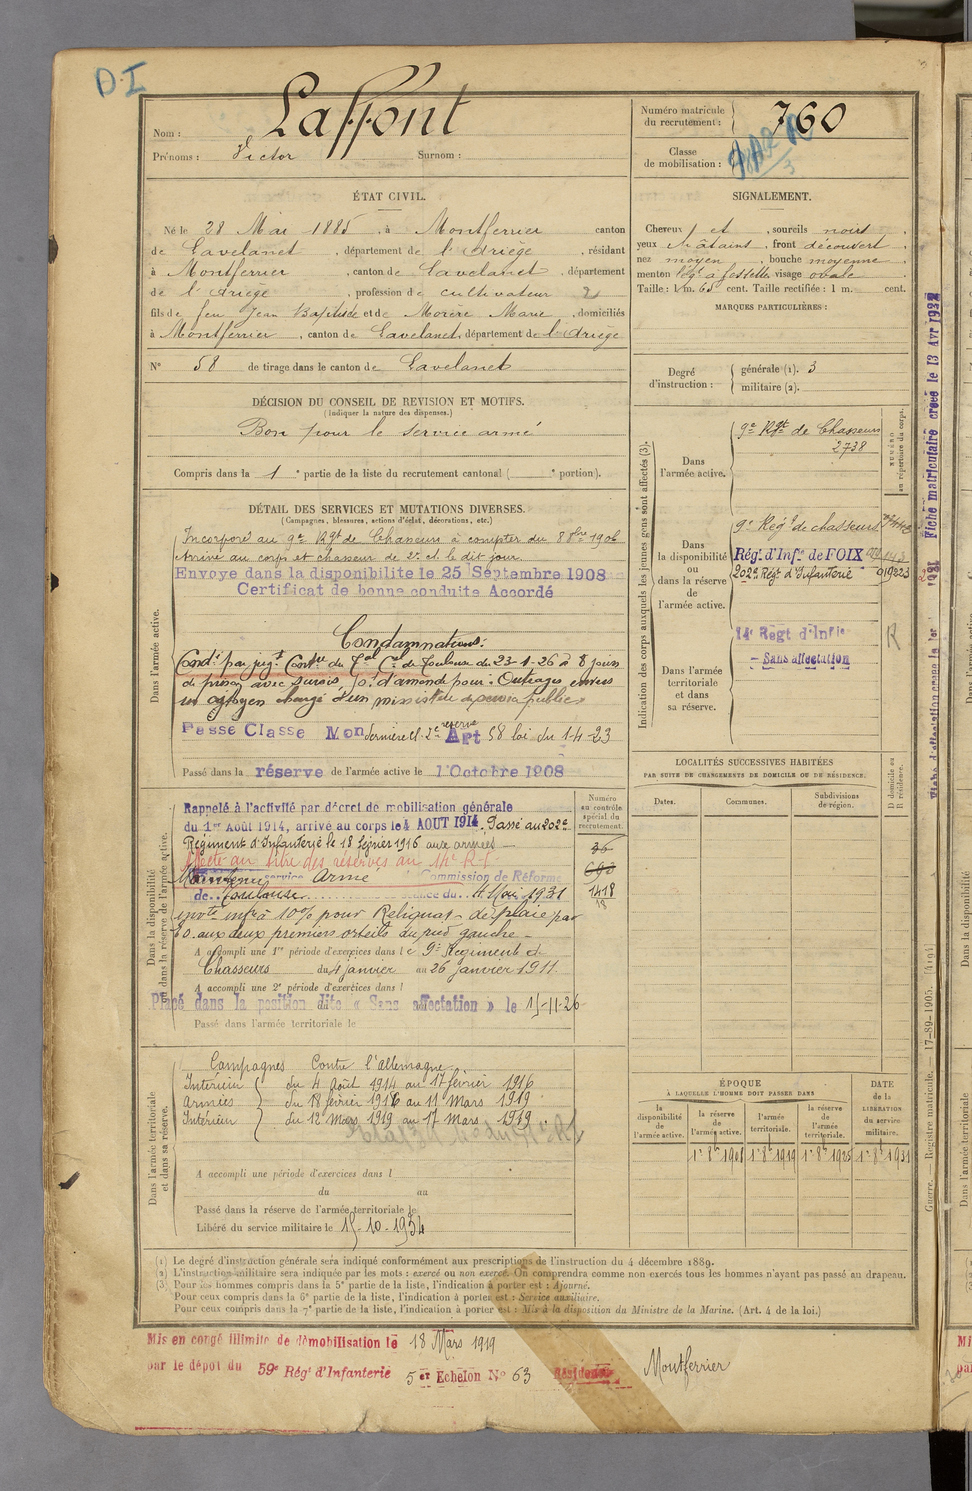 D.I
Nom : Laffont
Prénoms : Victor Surnom :
Numéro matricule
du recrutement : 760
Classe
de mobilisation :
ÉTAT CIVIL.
Né le 28 Mai 1885, à Montferrier canton
de Lavelanet, département de l'Ariège, résidant
à Montferrier, canton de Lavelanet, département
de l'Ariège, profession de cultivateur
fils de feu Jean Baptiste et de Morère Marie, domiciliés
à Montferrier, canton de Lavelanet, département de l'Ariège
N° 58 de tirage dans le canton de Lavelanet
SIGNALEMENT.
Cheveux et, sourcils noirs,
yeux châtains, front découvert,
nez moyen, bouche moyenne,
menton à fossette visage ovale.
Taille : 1 m. 65 cent. Taille rectifiée : 1 m. cent.
MARQUES PARTICULIÈRES :
Degré
d'instruction :
générale (1). 3
militaire (2).
DÉCISION DU CONSEIL DE REVISION ET MOTIFS.
(Indiquer la nature des dispenses.)
Bon pour le service armé
Compris dans la 1e partie de la liste du recrutement cantonal ( e portion).
DÉTAIL DES SERVICES ET MUTATIONS DIVERSES.
(Campagnes, blessures, actions d'éclat, décorations, etc.)
Dans l'armée active.
Incorporé au 9e Rgt de Chasseurs à compter du 8 8bre 1906
Arrivé au corps et chasseur de 2e cl. le dit jour.
Envoyé dans la disponibilité le 25 Septembre 1908
Certificat de bonne conduite Accordé
Condamnations:
Condé par jugt Contre du Tal Cel de Toulouse du 23-1-26 à 8 jours
de prison avec sursis, d'amende pour : Outrages envers
un citoyen chargé d'un ministère de service public
Passé Classe Mon dernière cl. 2e réserve Art 58 loi du 1-4-23
Passé dans la réserve de l'armée active le 1 Octobre 1908
Indication des corps auxquels les jeunes gens sont affectés (3).
NUMÉRO
au répertoire du corps.
Dans
l'armée active.
9e Rgt de Chasseurs
2738
Dans
la disponibilité
ou
dans la réserve
de
l'armée active.
9e Régt de chasseurs
Régt d'Infie de FOIX
202e Régt d'Infanterie 019223
Dans l'armée
territoriale
et dans
sa réserve.
14e Régt d'Infie
- Sans affectation
R
LOCALITÉS SUCCESSIVES HABITÉES
PAR SUITE DE CHANGEMENTS DE DOMICILE OU DE RÉSIDENCE.
Dates.
Communes.
Subdivisions
de région.
D domicile ou
R résidence.
Dans la disponibilité
ou dans la réserve de l'armée active.
Numéro
au contrôle
spécial du
recrutement.
36
690
1418
Rappelé à l'activité par décret de mobilisation générale
du 1er Août 1914, arrivé au corps le 4 AOUT 1914. Passé au 202e
Régiment d'Infanterie le 18 février 1916 aux armées
Affecté au titre des réserves au 14e R.I.
Maintenu service Armé Commission de Réforme
de Toulouse séance du 4 Mai 1931
invté infre à 10% pour Reliquat de plaie par
E.O. aux deux premiers orteils du pied gauche
A accompli une 1e période d'exercices dans le 9e Régiment de
Chasseurs du 4 janvier au 26 janvier 1911.
A accompli une 2e période d'exercices dans l
Placé dans la position dite « Sans affectation » le 15-11-26
Passé dans l'armée territoriale le
Dans l'armée territoriale
et dans sa réserve.
Campagnes Contre l'Allemagne
Intérieur du 4 Août 1914 au 17 février 1916
Armées du 18 février 1916 au 11 Mars 1919
Intérieur du 12 Mars 1919 au 17 Mars 1919.
A accompli une période d'exercices dans l
du au
Passé dans la réserve de l'armée territoriale le
Libéré du service militaire le 15-10-1934
ÉPOQUE
À LAQUELLE L'HOMME DOIT PASSER DANS
DATE
de la
LIBÉRATION
du service
militaire.
la
disponibilité
de
l'armée active.
la réserve
de
l'armée active.
l'armée
territoriale.
la réserve
de
l'armée
territoriale.
1er 8bre 1908 1er 8bre 1919 1er 8bre 1925 1er 8bre 1931
(1) Le degré d'instruction générale sera indiqué conformément aux prescriptions de l'instruction du 4 décembre 1889.
(2) L'instruction militaire sera indiquée par les mots : exercé ou non exercé. On comprendra comme non exercés tous les hommes n'ayant pas passé au drapeau.
(3) Pour les hommes compris dans la 5e partie de la liste, l'indication à porter est : Ajourné.
Pour ceux compris dans la 6e partie de la liste, l'indication à porter est : Service auxiliaire.
Pour ceux compris dans la 7e partie de la liste, l'indication à porter est : Mis à la disposition du Ministre de la Marine. (Art. 4 de la loi.)
Mis en congé illimité de démobilisation le 18 Mars 1919
par le dépôt du 59e Régt d'Infanterie 5er Echelon N° 63 Résidence Montferrier
Fiche matriculaire créée le 13 Avr 1932
Guerre. — Registre matricule. — 17-89-1905.